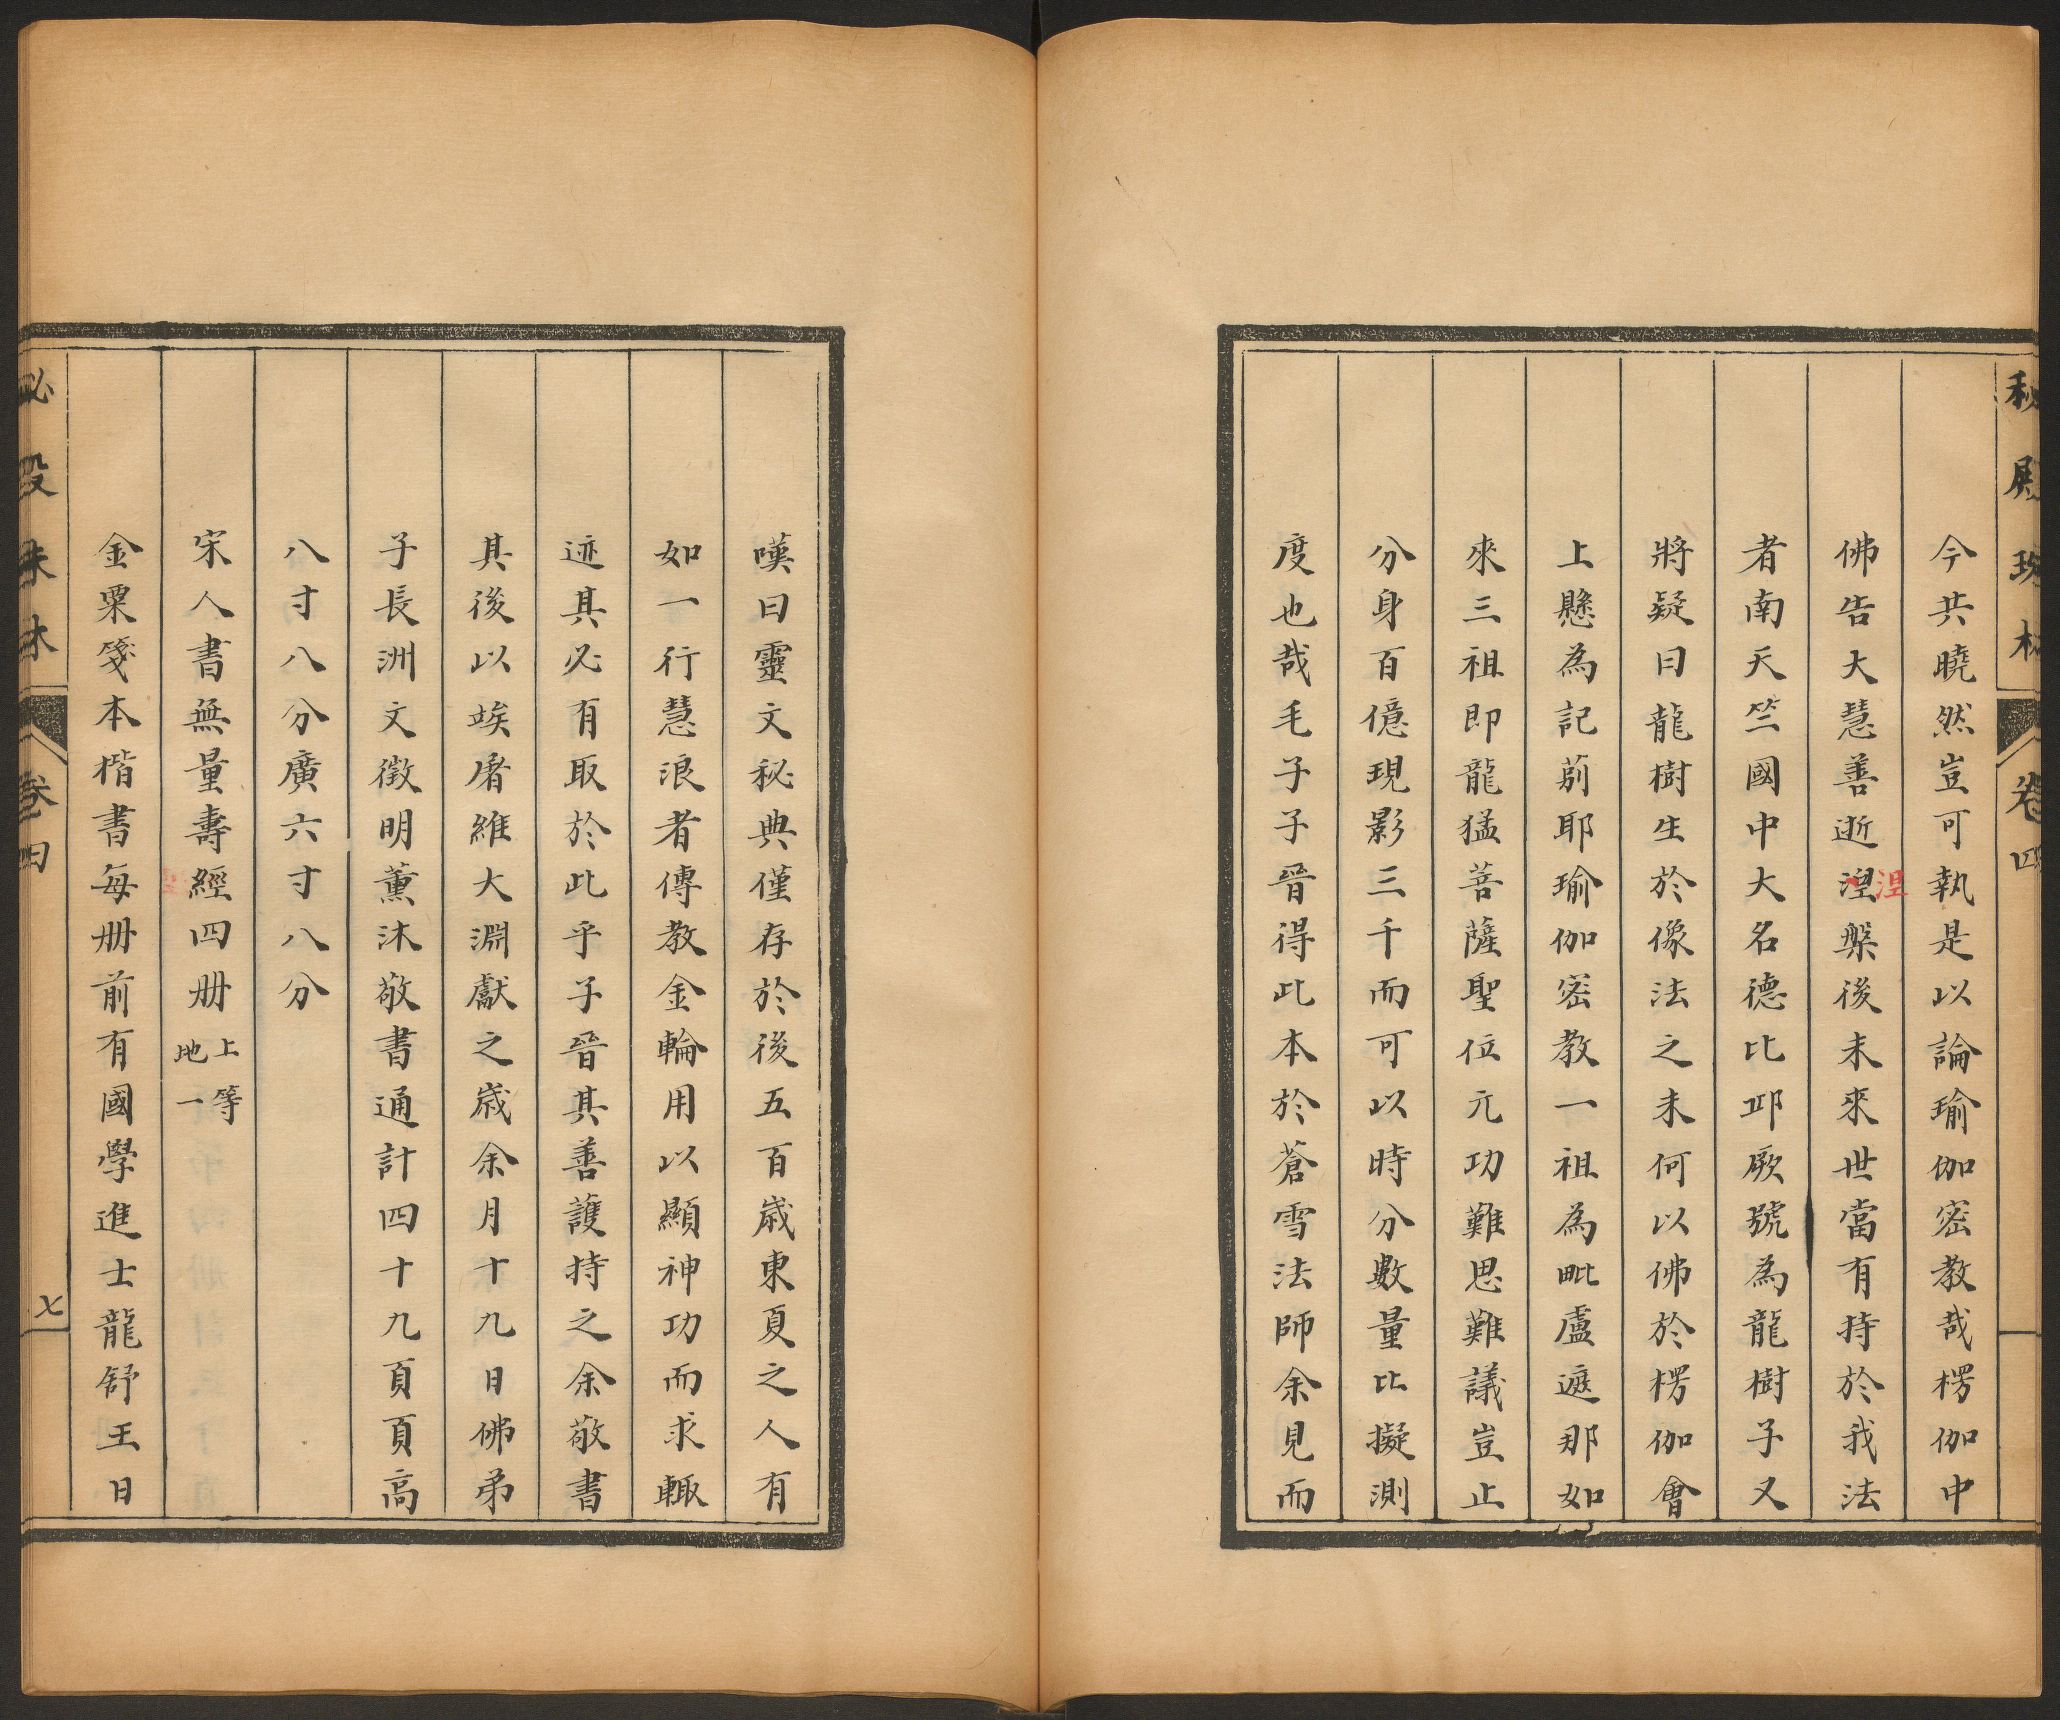 秘殿珠林
卷四
今共曉然豈可執是以論瑜伽密教哉楞伽中
佛告大慧善逝湼槃後未來世當有持於我法
涅
者南天竺國中大名德比邱厥號為龍樹子又
將疑曰龍樹生於像法之末何以佛於楞伽會
上懸為記莂耶瑜伽密教一祖為毗盧遮那如
來三祖即龍猛菩薩聖位元功難思難議豈止
分身百億現影三千而可以時分數量比擬測
度也哉毛子子晉得此本於蒼雪法師余見而
嘆曰靈文秘典僅存於後五百歲東夏之人有
如一行慧浪者傳教金輪用以顯神功而求輙
迹其必有取於此乎子晉其善護持之余敬書
其後以竢屠維大淵獻之歲余月十九日佛弟
子長洲文徵明薰沐敬書通計四十九頁頁高
八寸八分廣六寸八分
宋人書無量壽經四册上等地一
金粟箋本楷書每册前有國學進士龍舒王日
秘殿珠林
卷四
七